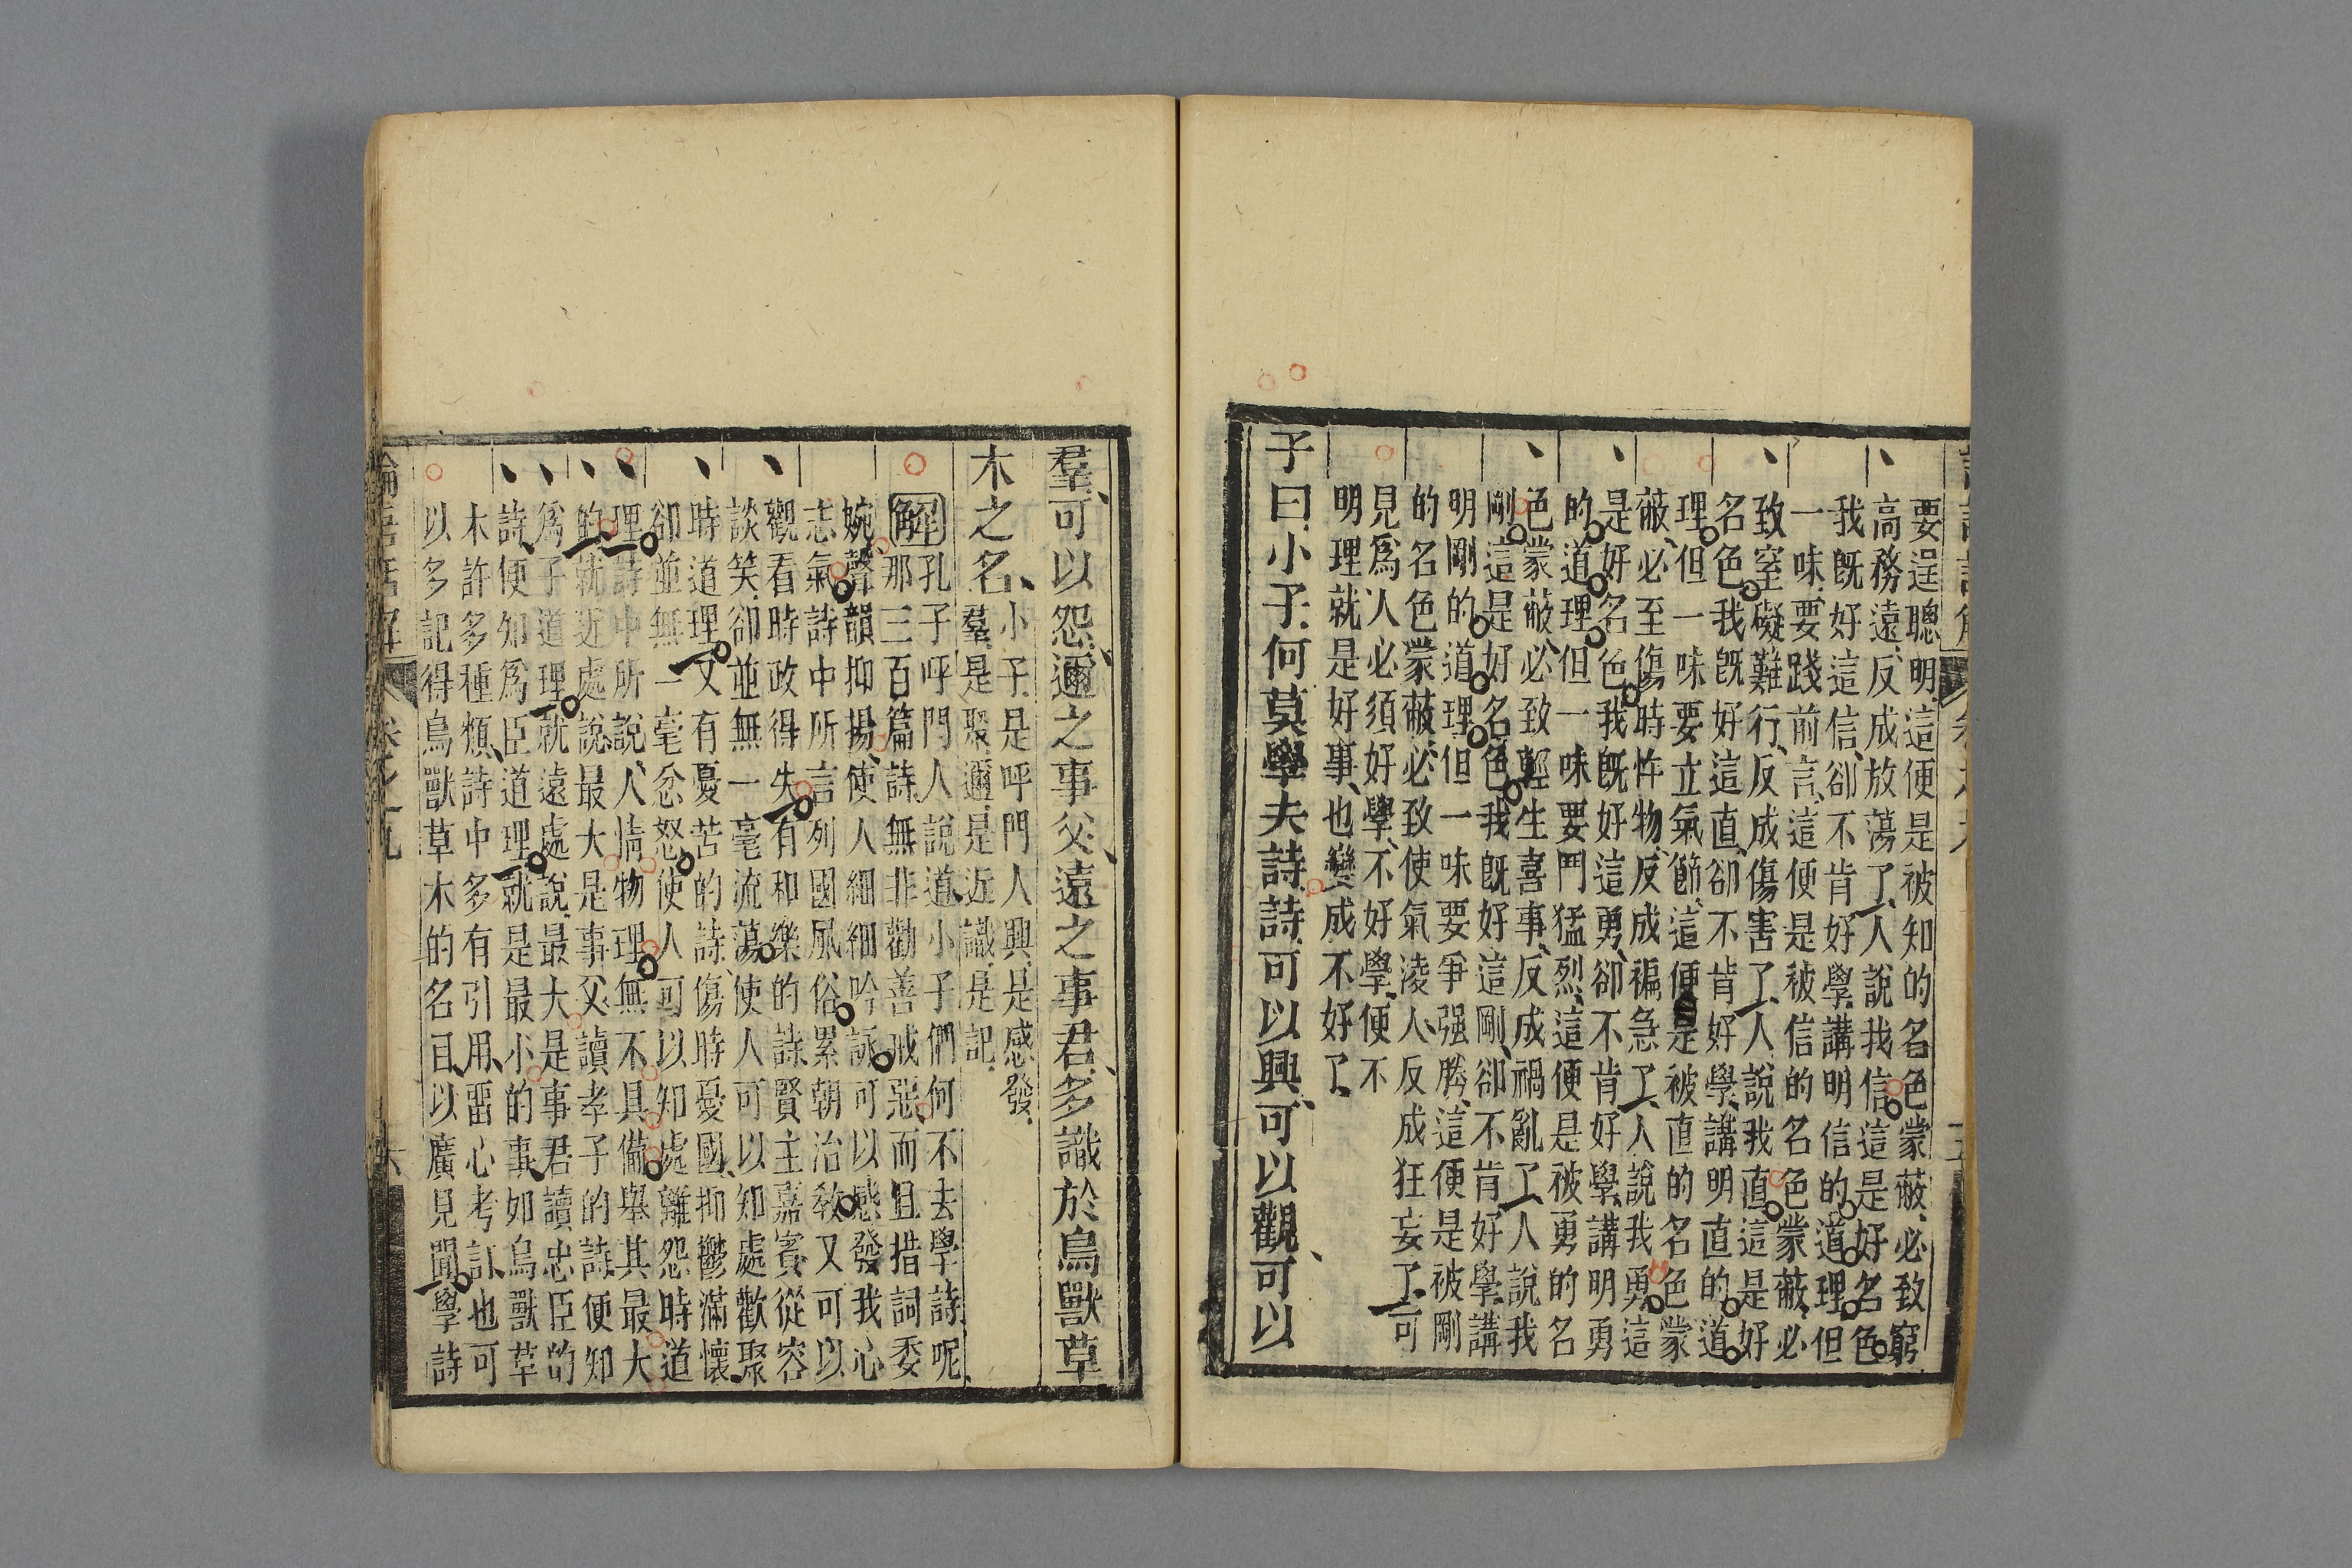 要逞聰明、這便是被知的名色蒙蔽、必致窮
高務遠、反成放蕩了、人說我信這是好名色
我既好這信、卻不肯好學、講明信的道理但
一味要踐前言、這便是被信的名色蒙蔽、必
致窒礙難行、反成傷害了、人說我直這是好
名色我既好這直、卻不肯好學、講明直的道
理但一味要立氣節、這便是被直的名色蒙
蔽、必至傷時忤物、反成褊急了、人說我勇這
是好名色我既好這勇、卻不肯好學、講明勇
的道理但一味要鬥猛烈、這便是被勇的名
色蒙蔽、必致輕生喜事、反成禍亂了、人說我
剛這是好名色我既好這剛、卻不肯好學、講
明剛的道理但一味要爭强勝、這便是被剛
的名色蒙蔽、必致使氣淩人、反成狂妄了、可
見為人必須好學、不好學、便不
明理就是好事、也變成不好了、
子曰、小子、何莫學夫詩、詩、可以興、可以觀、可以
羣、可以怨、邇之事父、遠之事君、多識於鳥獸草
木之名、
小子、是呼門人興、是感發、
羣、是聚、邇、是近、識、是記、
解孔子呼門人說道、小子們何不去學詩呢、
那三百篇詩、無非勸善戒惡、而且措詞委
婉、聲韻抑揚、使人細細吟詠可以感發我心
志氣詩中所言列國風俗累朝治教又可以
觀看時政得失有和樂的詩、賢主嘉賓從容
談笑、卻並無一毫流蕩使人可以知處歡聚
時道理又有憂苦的詩、傷時憂國、抑鬱滿懷、
卻並無一毫忿怒使人可以知處離怨時道
理詩中所說、人情物理無不具備舉其最大
的就近處說、最大是事父、讀孝子的詩、便知
為子道理就遠處說、最大是事君、讀忠臣的
詩、便知為臣道理就是最小的事、如鳥獸草
木許多種類、詩中多有引用、畱心考訂、也可
以多記得鳥獸草木的名目、以廣見聞學詩